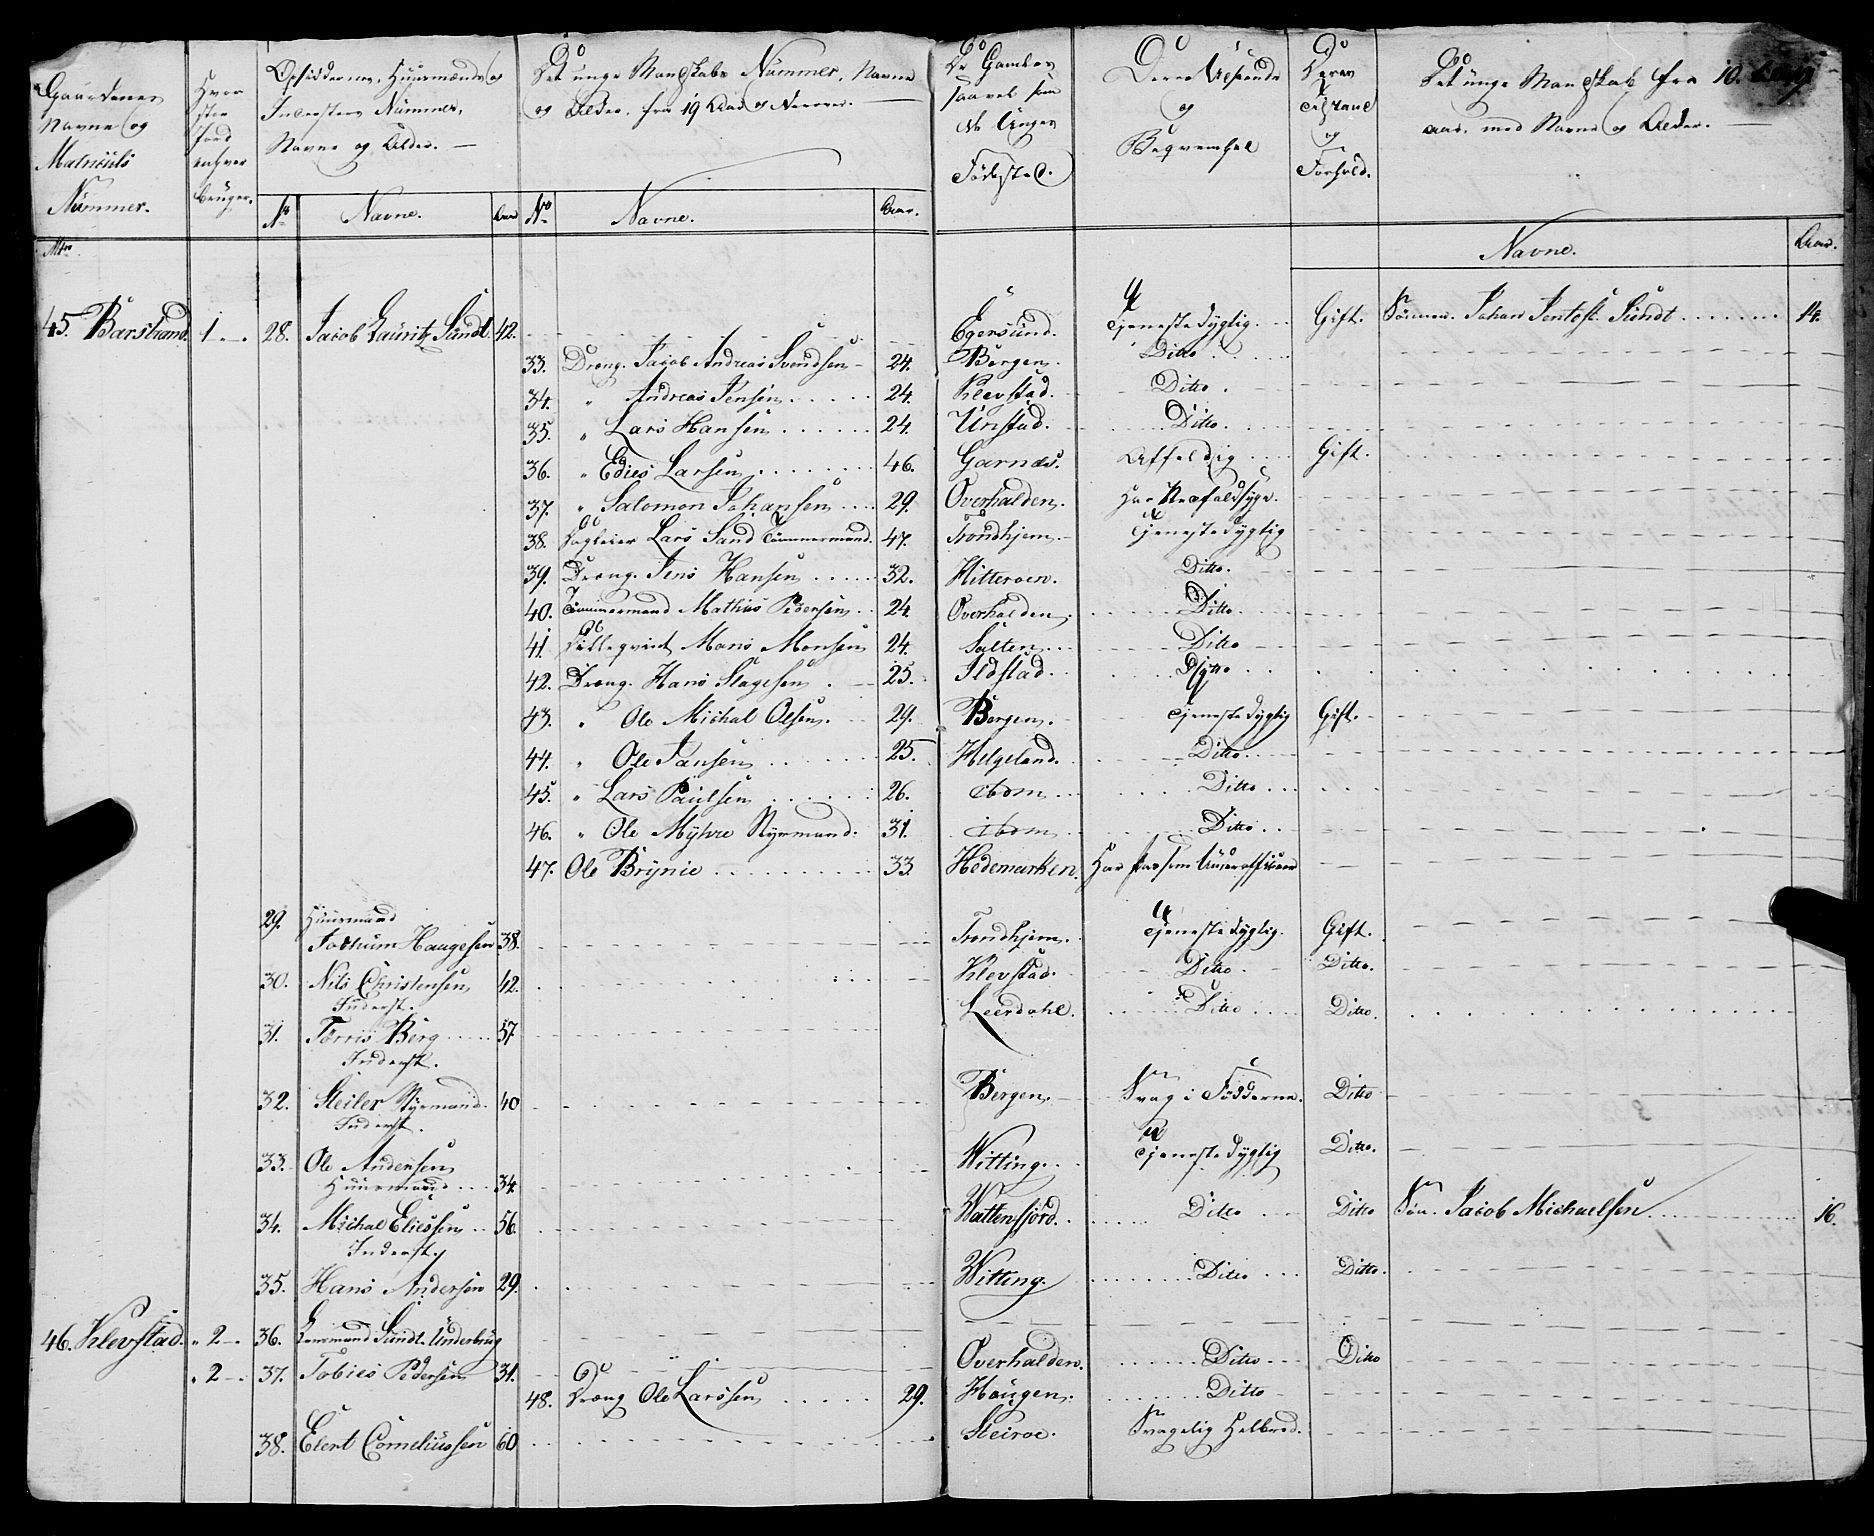 Gaardenes
Navne og
Matriculs
Nummer.
Hvor
stor
Jord
enhver
bruger.
Opsiddernes, Huusmænds og
Indersters Nummer,
Navne og Alder.
Det unge Mandskabs Nummer, Navne
og Alder, fra 19 Aar og derover.
De Gamles
saavel som
de Unges
Fødested.
Deres Udseende
og
Beqvemhed
Deres
Tilstand
og
Forhold.
Det unge Mandskab fra 10.
aar. med Navne og Alder.
No Navne. Aar No Navne. Aar. Navne. Aar.
Mtr.
45. Barstrand 1 28. Jacob Lauritz Sundt 42. Egersund. Tjenestedygtig Gift. Sønnen. Johan Sundt 14.
33. Dreng. Jacob Andreas Svendsen 24. Bergen. Ditto
34. " Andreas Jensen 24. Klevstad. Ditto.
35. " Lars Hansen 24. Unstad. Ditto.
36. " Edies Larsen 46. Garnæs. Affeldig Gift.
37. " Salomon Johansen 29. Overhalden. har Nedfaldsyge.
38. Logleier Lars Sand Tømmermand. 47. Trondhjem. Tjenestedygtig
39. Dreng. Jens Hansen 32. Hitteroen. Ditto.
40. Tømmermand Mathias Pedersen 24. Overhalden. Ditto
41. Mons Monsen 24. Salten. Ditto
42. Dreng. Hans Slagesen 25. Ildstad. Ditto
43. " Ole Michal Olsen. 29. Bergen. Tjenestedygtig Gift.
44. " Ole Jansen 25. Helgeland. Ditto
45. " Lars Paulsen 26. Ibdm Ditto
46. " Ole Myhre Styrmand. 31. Ibdm Ditto
47. Ole Brynie 33. Hedemarken. Har som Underofficeer
29. Huusmand
Jochum Haugesen 38. Trondhjem. Tjenestedygtig. Gift.
30. Nils Christensen 42. Klevstad. Ditto Ditto.
Inderst.
31. Torris Berg 57 Leerdahl. Ditto Ditto.
Inderst.
32. Steiler Styrmand. 40 Bergen. Svag i Fødderne. Ditto
Inderst.
33. Ole Andersen Witting. Tjenestedygtig Ditto.
Huusmand 34.
34. Michal Eliessen 56. Wattenfjord. Ditto Ditto Søn. Jacob Michaelsen 16.
Inderst
35. Hans Andersen 29. Witting. Ditto Ditto.
46. Klevstad. " 2 36. Lensmand Sundt. Underbrug
" 2 37. Tobies Pedersen 31. Overhalden. Ditto Ditto
48. Dreng Ole Larssen 29. Haugen. Ditto
38. Elert Corneliussen 60 Steiroe. Svagelig Helbred.